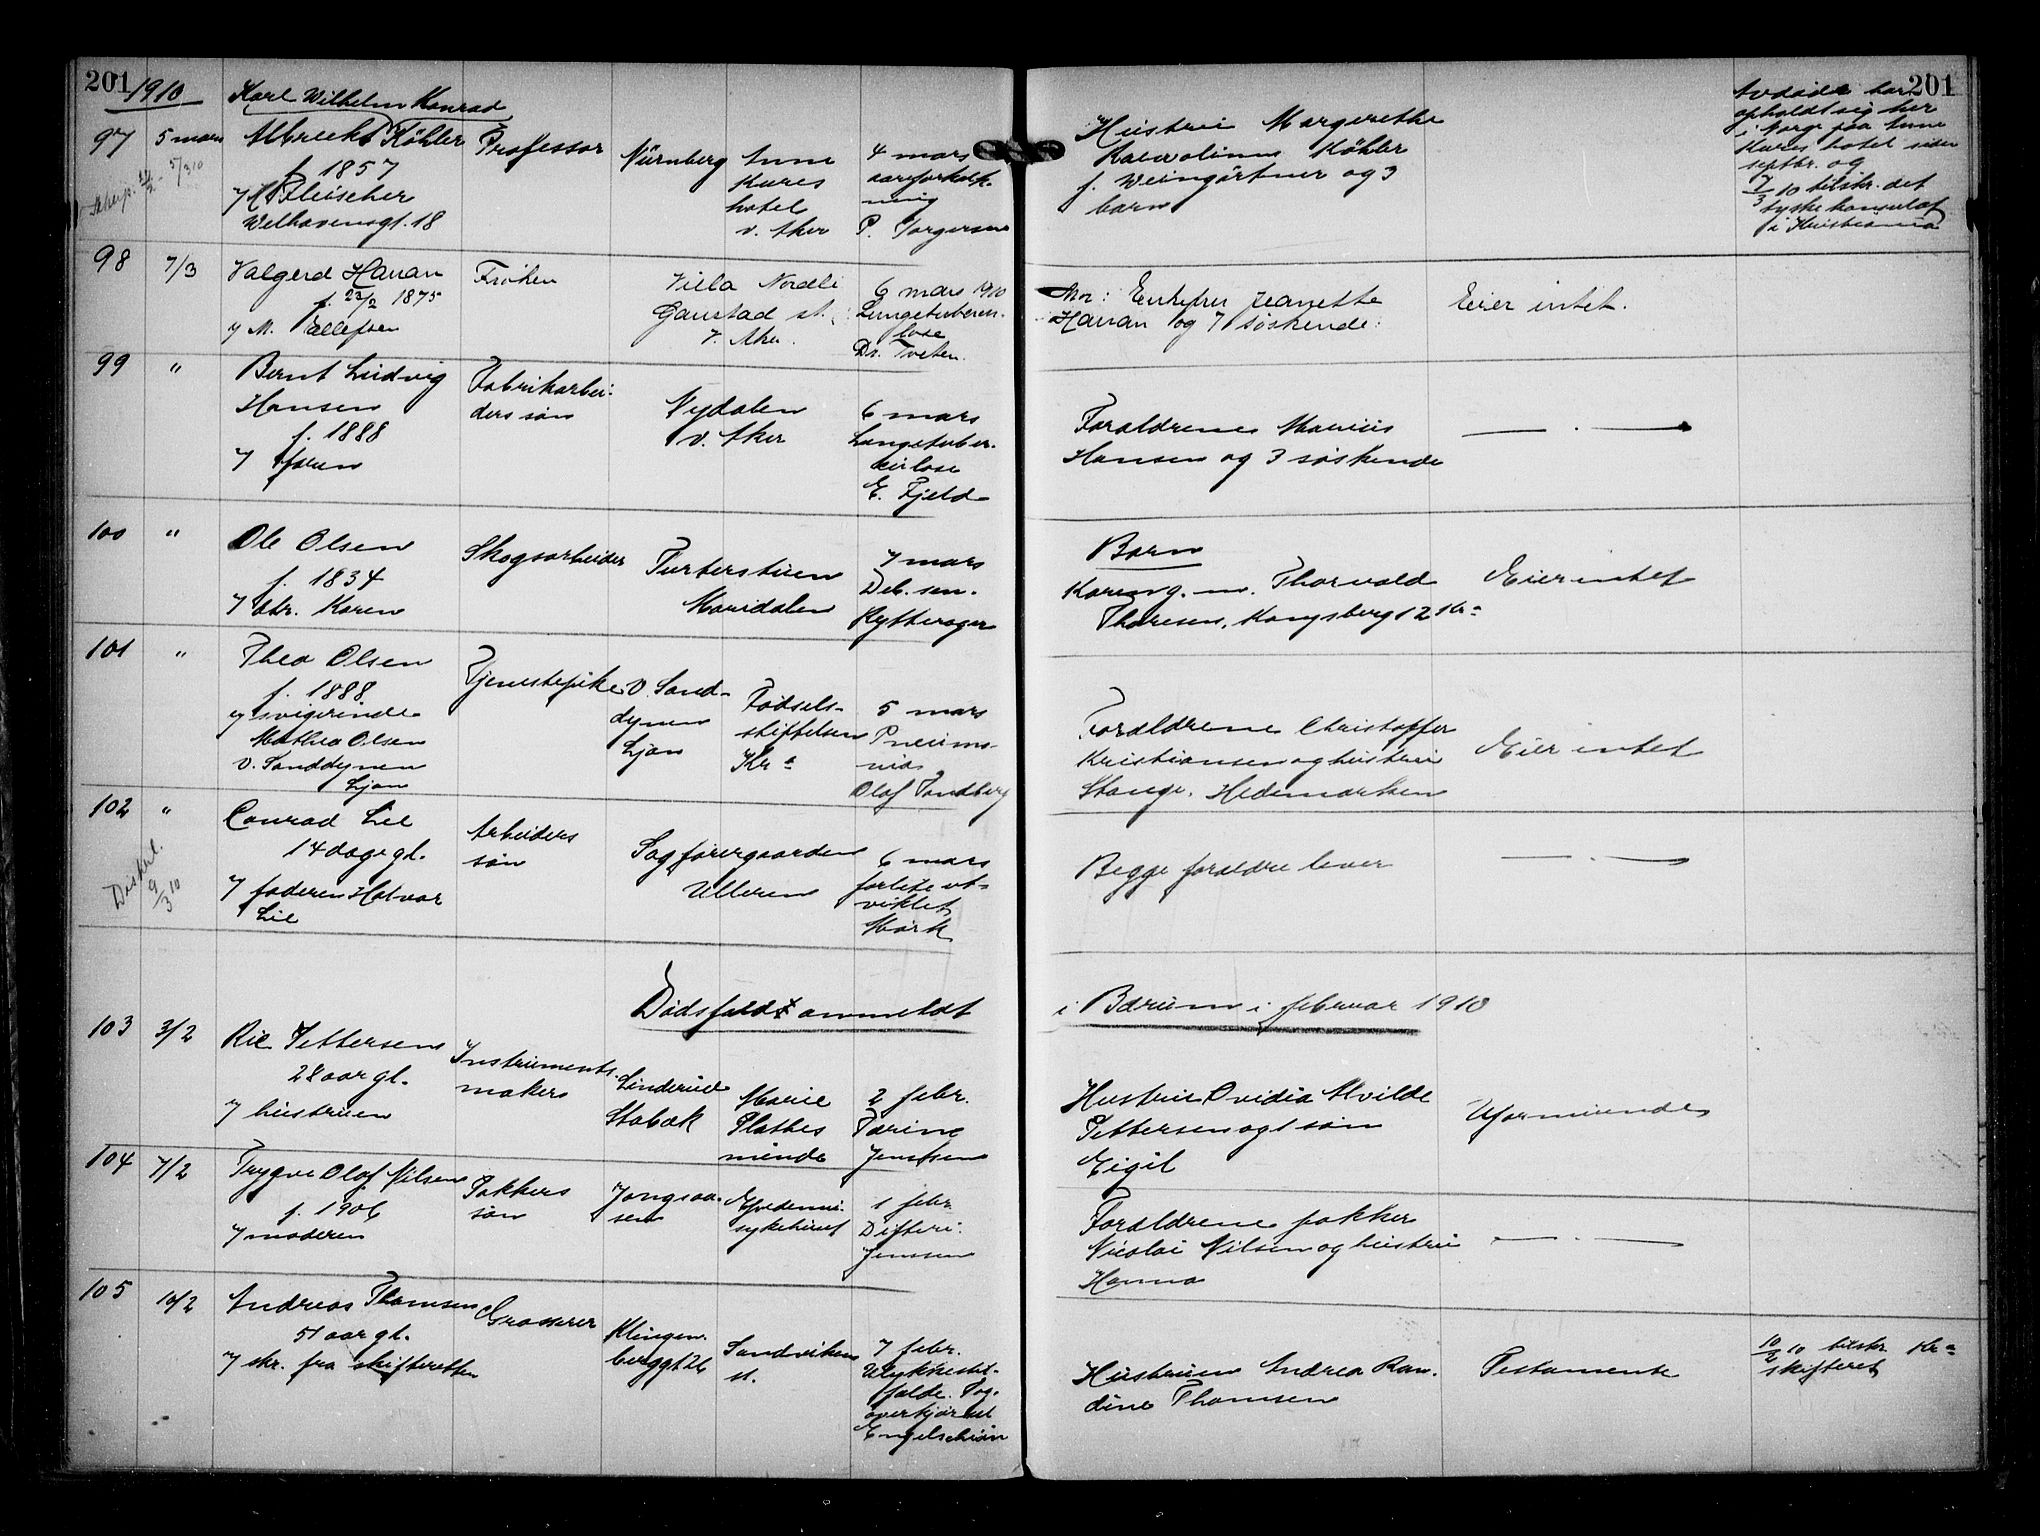 201
1910
Karl Wilhelm Konrad
97
5 mars
Albrecht Köhler
f. 1857
v/ Fleischer
Welhavensgt. 18
Professor
Nürnberg
Anne
Kures
hotel
v. Aker
4 mars
aareforkalk-
ning
P. Torgersen
98
7/3
Valgerd Hanan
f. 23/2 1875
v/ M. Ellefsen
Frøken
Villa Nordli
Gaustad st.
V. Aker.
6 mars 1910
Lungetuberku-
lose
Dr. Tveten.
99
"
Bernt Ludvig
Hansen
f. 1888
v/ faren
Fabrikarbei-
ders søn
Nydalen
v. Aker
6 mars
Lungetuber-
kulose
E. Fjeld
100
"
Ole Olsen
f. 1834
v/ dtr. Karen
Skogsarbeider
Turterstuen
Maridalen
7 mars
Deb. sen.
Rytterager
101
"
Thea Olsen
f. 1888
v/ svigerinde
Mathea Olsen
v. Sanddynen
Ljan
Tjenestepike
v. Sand-
dynen
Ljan
Fødsels-
stiftelsen
Kr a
5 mars
Pneumo-
nia
Olaf Tandberg
102
"
Diskrl.
9/3 10
Conrad Lie
14 dage gl.
v/ faderen Halvar
Lie
Arbeiders
søn
Sagførergaarden
Ulleren
6 mars
forlite ut-
viklet
Mørk
Dødsfald anmeldt
103
3/2
Ric Pettersen
28 aar gl.
v/ hustruen
Instruments-
makers
Linderud
Stabæk
Marie
Plathes
minde
2 febr.
Tarine
Jenssen
104
7/2
Trygve Olaf Nilsen
f. 1906
v/ moderen
Pakkers
søn
Jongsaa-
sen
Epedemi-
sykehuset
1 febr.
Difteri.
Jenssen
105
10/2
Andreas Thomsen
51 aar gl.
v/ skr. fra skifteretten
Grosserer
Klingen-
berggt 26
Sandvikens
st.
7 febr.
Ulykkestil-
fælde. Tog-
overkjørsel
Engelschiøn
201
Hustru Margerethe
Karoline Köhler
f. Weingärtner og 3
barn
Avdøde har
opholdt sig her
i Norge paa Anne
Kures hotel siden
septbr. og
7/3 10 tilskr. det
tyske konsulat
i Kristiania
Mor: Enkefru Jeanette
Hanan og 7 søskende:
Eier intet.
Forældrene Marius
Hansen og 3 søskende
— . —
Barn
Karen g. m. Thorvald
Thoresen, Kongsberg 12 Kr a
Eier intet
Forældrene Christoffer
Kristiansen og hustru
Stange, Hedemarken
Eier intet
Begge forældre lever
— . —
i Bærum i februar 1910
Hustru Ovidia Alvilde
Pettersen og 1 søn
Eigil
Uformuende
Forældrene pakker
Nicolai Nilsen og hustru
Hanna
— . —
Hustruen Andrea Ran-
dine Thomsen
Testamente
10/2 10 tilskr. Kr a
skifteret